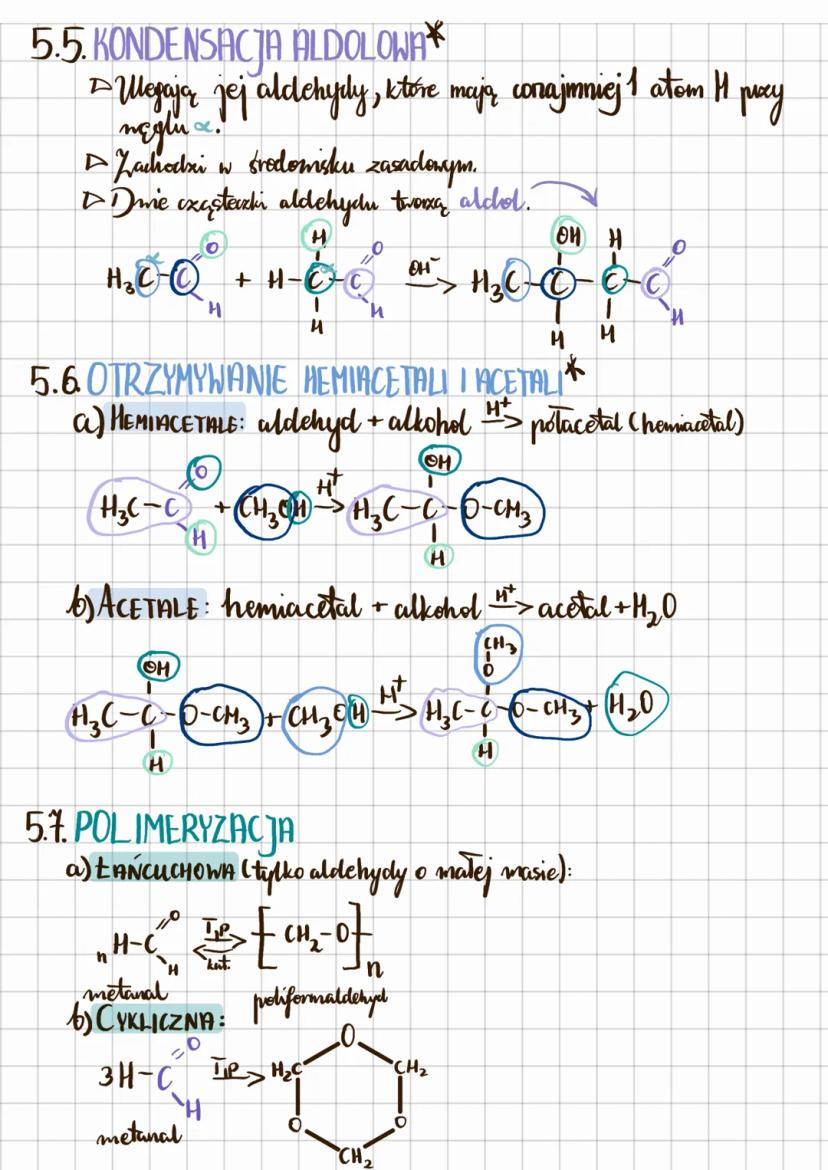 5.5. KONDENSACJA ALDOLOWA*
▷ Ulegają jej aldehydy, które mają conajmniej 1 atom H przy
węglu α.
▷ Zachodzi w środowisku zasadowym.
▷ Dwie cząsteczki aldehydu tworzą aldol.
α O H O OH H O
H₃C-C + H-C-C OH⁻ → H₃C-C-C-C
H H H H H H
5.6. OTRZYMYWANIE HEMIACETALI I ACETALI*
a) HEMIACETALE: aldehyd + alkohol H⁺ → półacetal (hemiacetal)
O OH
H₃C-C + CH₃OH H⁺ → H₃C-C-O-CH₃
H H
b) ACETALE: hemiacetal + alkohol H⁺ → acetal + H₂O
CH₃
OH O
H₃C-C-O-CH₃ + CH₃OH H⁺ → H₃C-C-O-CH₃ + H₂O
H H
5.7. POLIMERYZACJA
a) ŁAŃCUCHOWA (tylko aldehydy o małej masie):
n H-C=O H T,p kat. ⇄ [CH₂-O]n
metanal poliformaldehyd
b) CYKLICZNA:
O O
3H-C T,p → H₂C CH₂
H O O
metanal CH₂